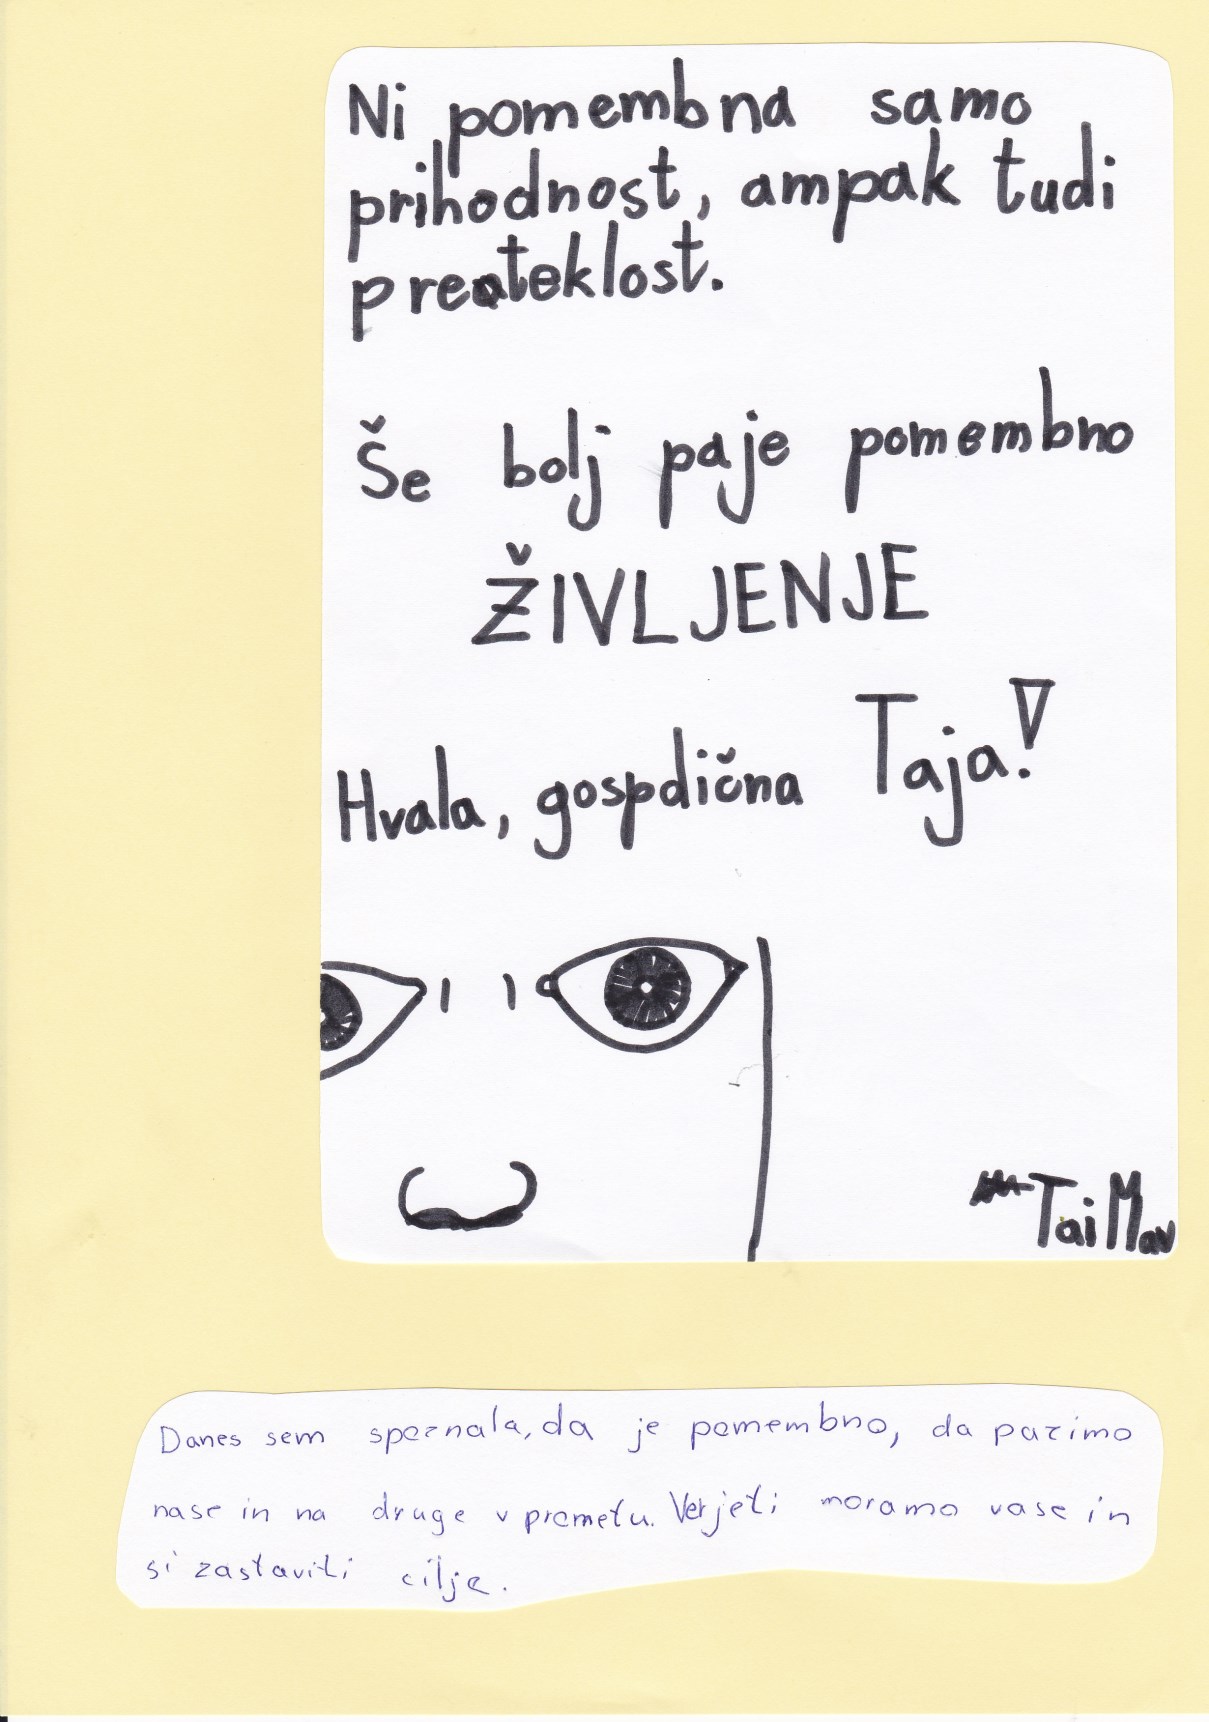 Ni pomembna samo
prihodnost, ampak tudi
preteklost.
Še bolj paje pomembno
ŽIVLJENJE
Hvala, gospdična Taja!
Tai Mav
Danes sem spoznala, da je pomembno, da pazimo
nase in na druge v prometu. Verjeti moramo vase in
si zastaviti cilje.